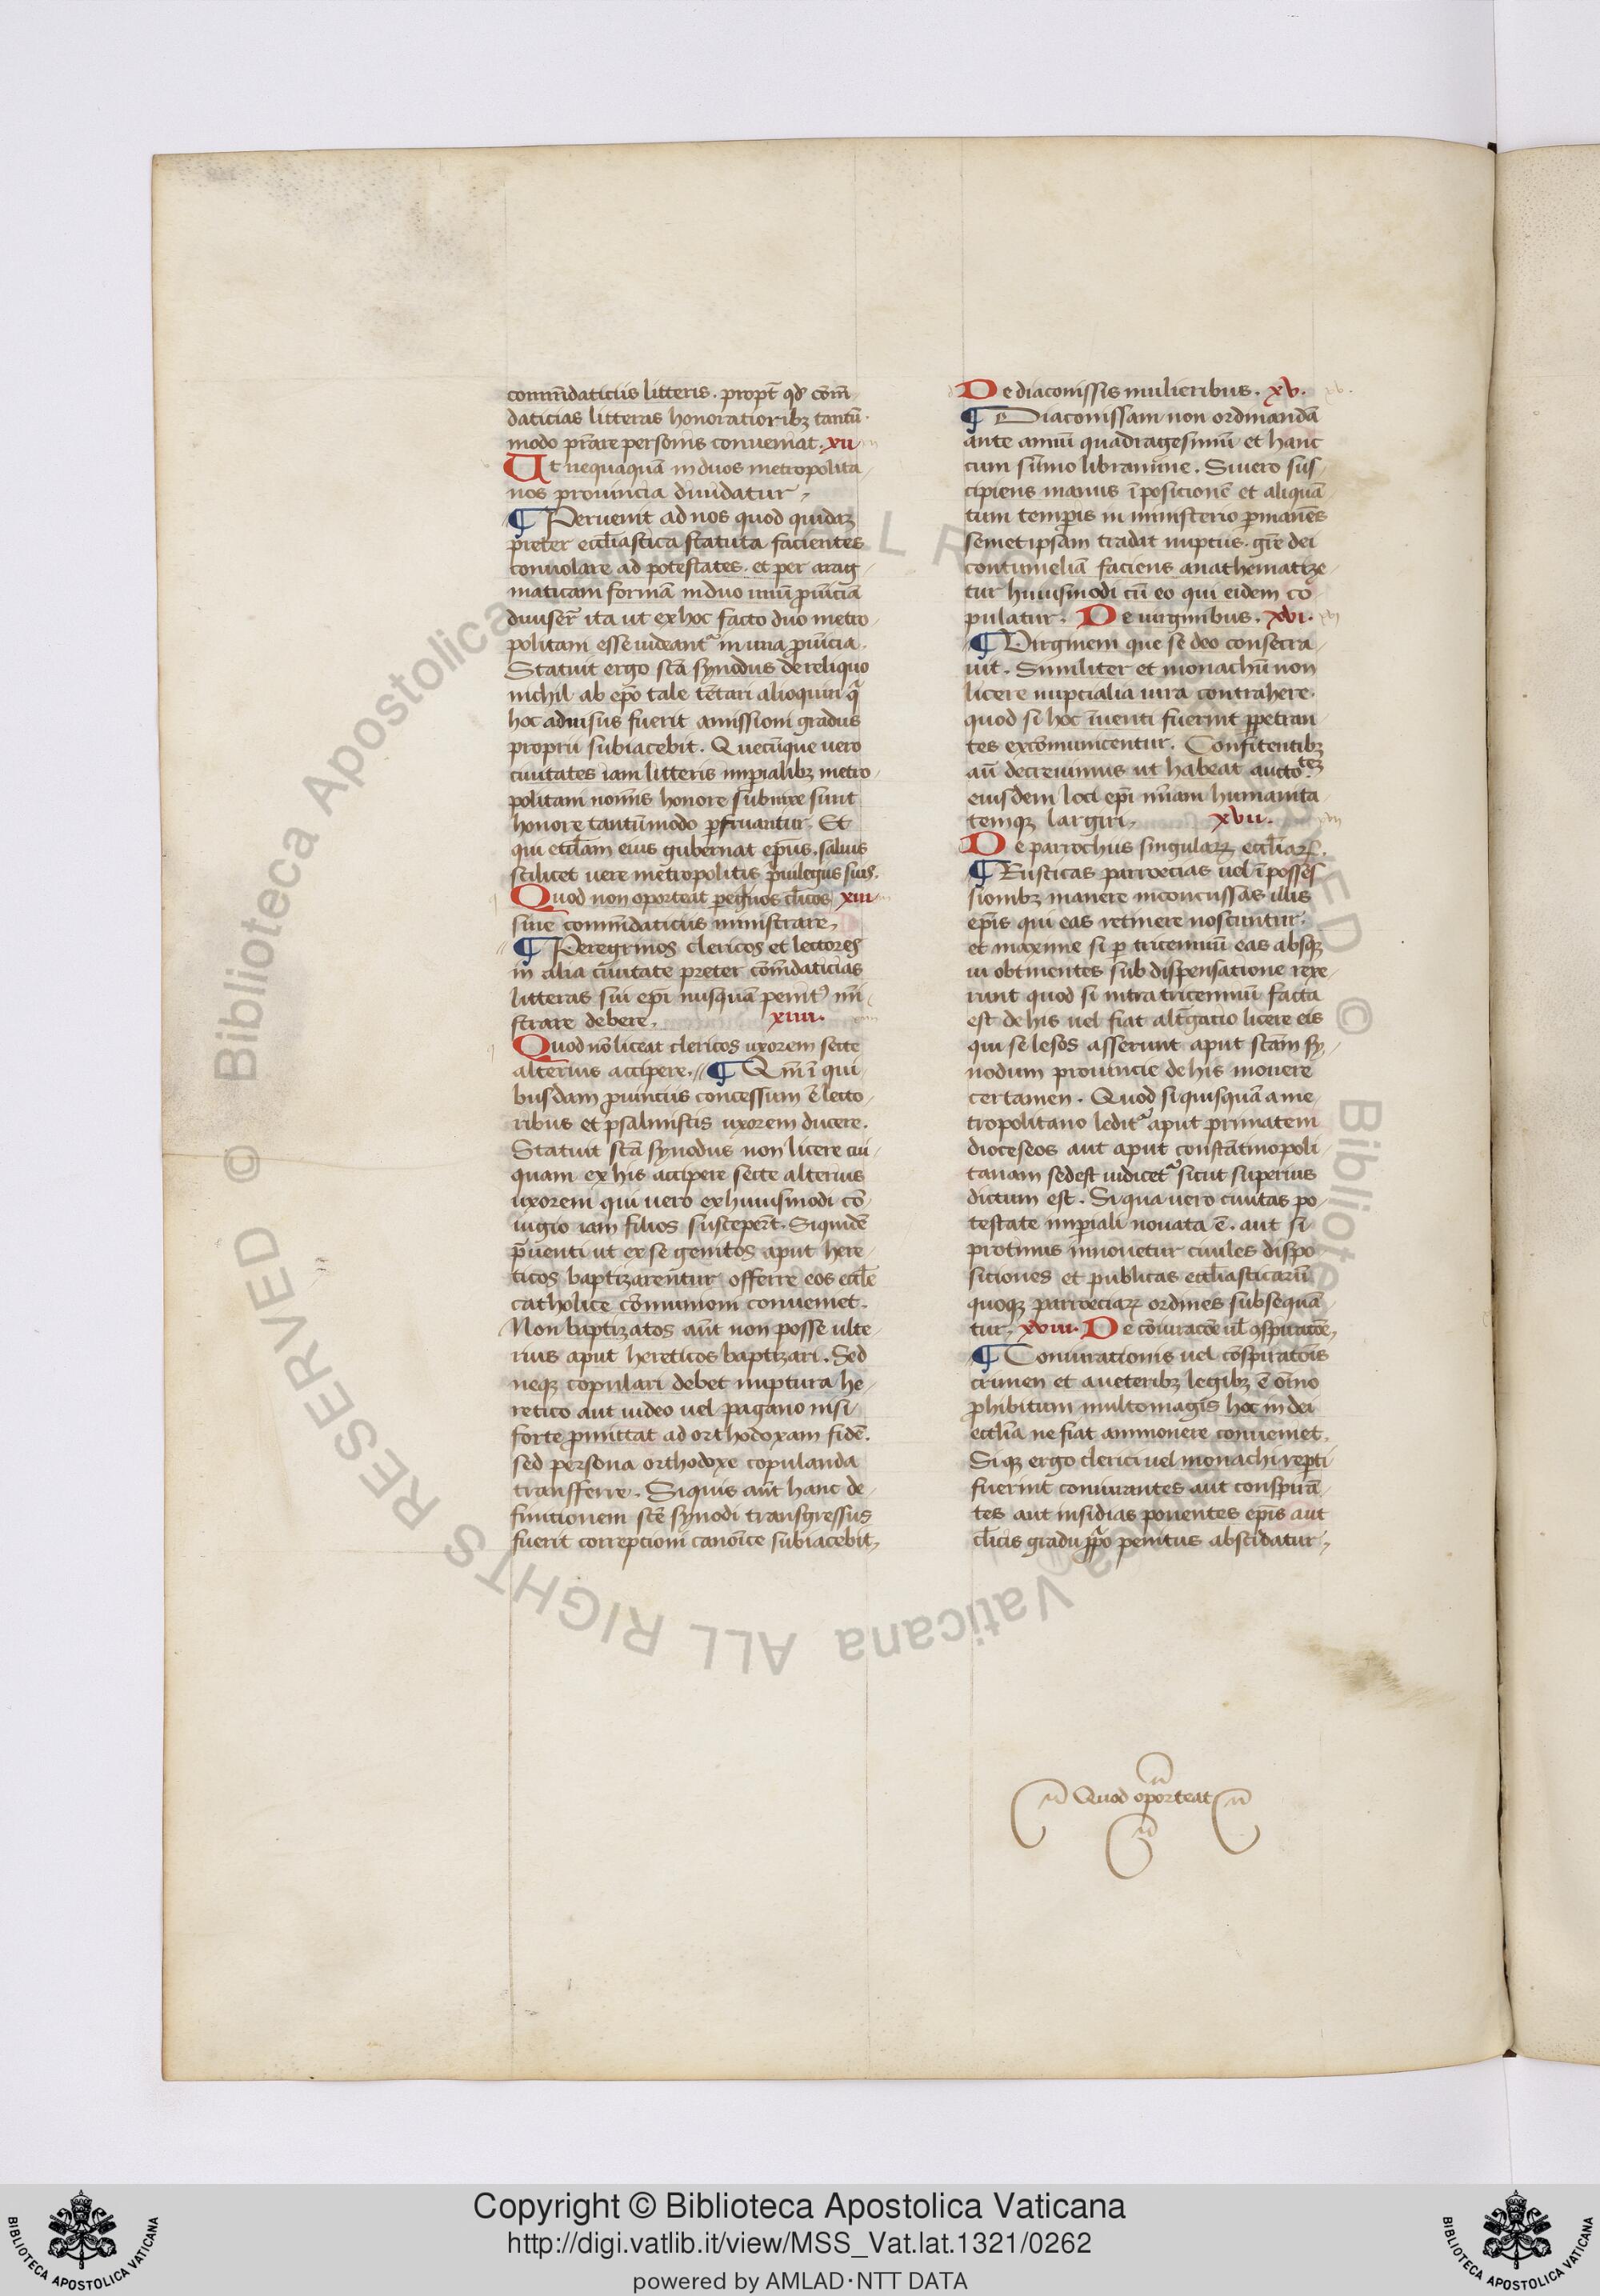 com̄daticiis litteris. propt̄ qd̓ com̄
daticias litteras honoratioribꝫ tantū
modo p̄stare personis conueniat. xii
Ut nequaquā in duos metropolita
nos prouincia diuidatur.
¶ Peruenit ad nos quod quidaꝫ
preter ecc̄liastica statuta facientes
conuolare ad potestates. et per arag
maticam formā in duo unā ꝓuīciā
diuiser̄t ita ut ex hoc facto duo metro
politani esse uideant᷑ in una ꝓuīcia.
Statuit ergo sc̄a synodus de reliquo
nichil ab ep̄o tale tētari alioquin q̄
hoc adnisus fuerit amissioni gradus
proprii subiacebit. Quecūque uero
ciuitates iam litteris imꝑialibꝫ metro
politani nominis honore subnixe sunt
honore tantūmodo ꝑfruantur. Et
qui eccl̄iam eius gubernat ep̄us. saluis
scilicet uere metropolitis p̄uilegiis suis.
Quod non oporteat peg̓nos cl̄icos xiii
sine com̄daticiis ministrare.
¶ Peregrinos clericos et lectores
in alia ciuitate preter com̄daticias
litteras sui ep̄i nusquā penit᷒ mi
strare debere. xiiii.
Quod nō liceat clericos uxorem secte
alterius accipere. ¶ Qm̄ ī qui
busdam ꝓuinciis concessum ē lecto
ribus et psalmistis uxorem ducere.
Statuit sc̄a synodus non licere cui
quam ex his accipere secte alterius
uxorem qui uero ex huiusmodi cō
iugio iam filios susceper̄t. Siquidē
p̄uenti ut ex se genitos aput here
ticos baptizarentur offerre eos eccl̄e
catholice cōmunioni conueniet.
Non baptizatos aūt non posse ulte
rius aput hereticos baptizari. Sed
neqꝫ copulari debet nuptura he
retico aut iudeo uel pagano nisi
forte ꝓmittat ad orthodoxam fidē.
sed persona orthodoxe copulanda
transferre. Siquis aūt hanc de
finitionem sc̄e synodi transgressus
fuerit correpcioni canonice subiacebit.
De diaconissis mulieribus. xv.
¶ Diaconissam non ordinandā
ante annū quadragesimū et hanc
cum sūmo libramine. Si uero sus
cipiens manus īposicionē et aliquā
tum temꝑis in ministerio ꝑmanēs
semetipsam tradat nuptiis. gr̄e dei
contumeliā faciens anathematize
tur huiusmodi cū eo qui eidem co
pulatur. De uirginibus. xvi.
¶ Virginem que se deo consecra
uit. Similiter et monachū non
licere nupcialia iura contrahere.
quod si hoc īuenti fuerint ꝑpetran
tes excōmunicentur. Confitentibꝫ
aūt decreuimus ut habeat aucto.teꝫ
eiusdem loci ep̄s misericordiam humanita
temqꝫ largiri. xvii.
De parrochiis singularꝝ eccl̄iarꝝ.
¶ Rusticas parroecias uel ī posses
sionibꝫ manere inconcussas illis
ep̄is qui eas retinere noscuntur.
et maxime si ꝑ tricenniū eas absqꝫ
ui obtinentes sub dispensatione rexe
runt quod si intra tricenniū facta
est de his uel fiat altercatio licere eis
qui se lesos asserunt aput sc̄am sy
nodum prouincie de his mouere
certamen. Quod si quisquā a me
tropolitano ledit᷑ aput primatem
dioceseos aut aput constātinopoli
tanam sedē st iudicet᷑ sicut superius
dictum est. Si qua uero ciuitas po
testate imꝑiali nouata ē. aut si
protinus innouetur ciuiles dispo
siciones et publicas eccl̄iasticarū
quoqꝫ parroeciarꝝ ordines subsequā
tur. xviii. De cōiuracōe ul̄ ꝯspiracōe.
¶ Coniurationis uel cōspiratōis
crimen et a ueteribꝫ legibꝫ ē om̄o
ꝓhibitum multo magis hoc in dei
eccl̄ia ne fiat ammonere conueniet.
Si qꝫ ergo clerici uel monachi reꝑti
fuerint coniurantes aut conspirā
tes aut insidias ponentes ep̄is aut
cl̄icis gradu ꝓprio penitus abscidatur.
Quod oporteat
Copyright © Biblioteca Apostolica Vaticana
http://digi.vatlib.it/view/MSS_Vat.lat.1321/0262
powered by AMLAD·NTT DATA
BIBLIOTECA APOSTOLICA VATICANA
BIBLIOTECA APOSTOLICA VATICANA
© Biblioteca Apostolica Vaticana ALL RIGHTS RESERVED